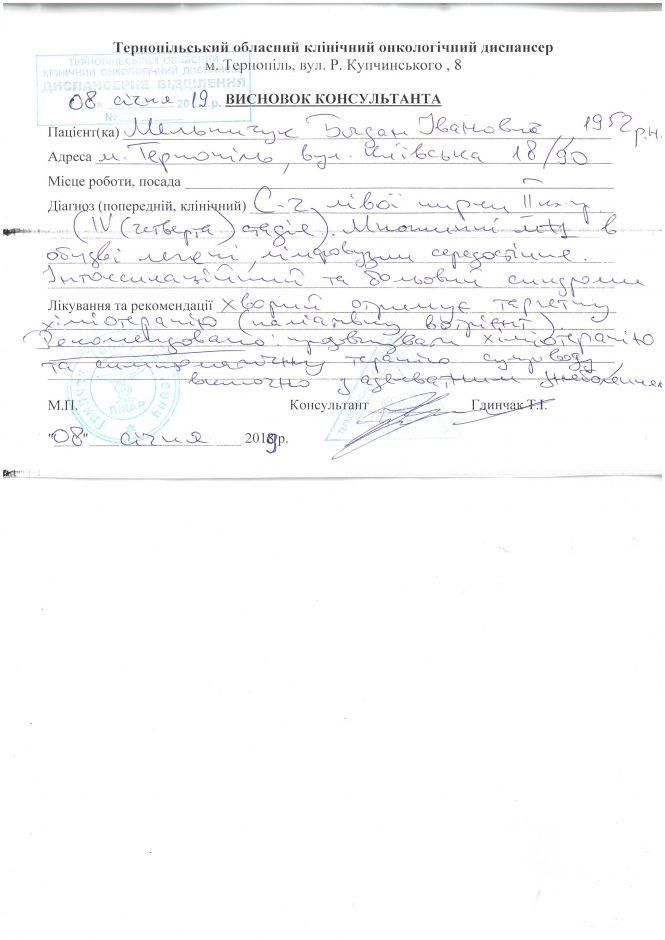 Тернопільський обласний клінічний онкологічний диспансер
м. Тернопіль, вул. Р. Купчинського , 8
ТЕРНОПІЛЬСЬКИЙ ОБЛАСНИЙ
КЛІНІЧНИЙ ОНКОЛОГІЧНИЙ ДИСПАНСЕР
ДИСПАНСЕРНЕ ВІДДІЛЕННЯ
08 січня 2019 р. ВИСНОВОК КОНСУЛЬТАНТА
№
Пацієнт(ка) Мельничук Богдан Іванович 1952 р.н.
Адреса м. Тернопіль, вул. Київська 18/90
Місце роботи, посада
Діагноз (попередній, клінічний) С-r лівої нирки II кл.гр
(IV (четверта) стадія). Множинні mts в
обидві легені, лімфовузли середостіння.
Інтоксикаційний та больовий синдроми
Лікування та рекомендації хворий отримує таргетну
хіміотерапію (паліативну
Рекомендовано: продовжувати хіміотерапію
та симптоматичну терапію супроводу
включно з адекватним знеболенням
ЛІКАР
М.П. Консультант Гдинчак Т.І.
"08" січня 2019 р.